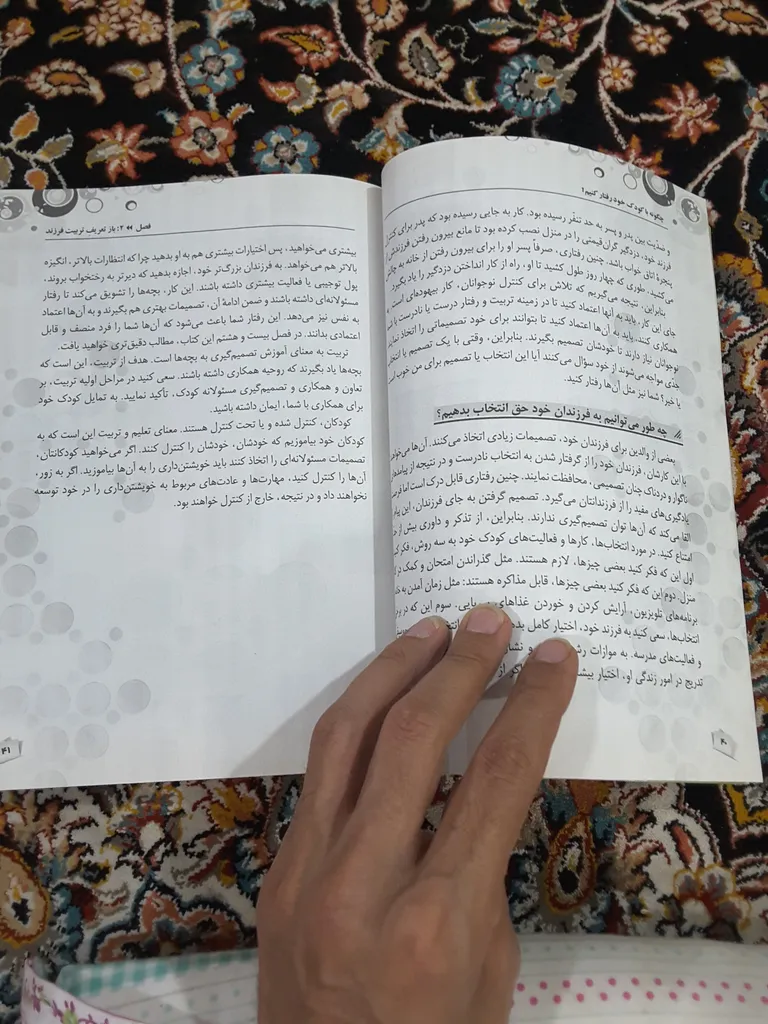 چگونه با کودک خود رفتار کنیم؟
و ضدّیت بین پدر و پسر به حد تنفّر رسیده بود. کار به جایی رسیده بود که پدر برای
فرزند خود، دزدگیر گران‌قیمتی را در منزل نصب کرده بود تا مانع بیرون رفتن فرزندش از
پنجرهٔ اتاق خواب باشد. چنین رفتاری، صرفاً پسر او را برای بیرون رفتن از خانه به چالش
می‌کشید، طوری که چهار روز طول کشید تا او، راه از کار انداختن دزدگیر را یاد بگیرد
بنابراین، نتیجه می‌گیریم که تلاش برای کنترل نوجوانان، کار بیهوده‌ای است. به
جای این کار، باید به آنها اعتماد کنید تا در زمینه تربیت و رفتار درست یا نادرست با شما
همکاری کنند. باید به آن‌ها اعتماد کنید تا بتوانند برای خود تصمیماتی را اتخاذ نمایند
نوجوانان نیاز دارند تا خودشان تصمیم بگیرند. بنابراین، وقتی با یک تصمیم یا انتخاب
جدّی مواجه می‌شوند از خود سؤال می‌کنند آیا این انتخاب یا تصمیم برای من خوب است
یا خیر؟ شما نیز مثل آن‌ها رفتار کنید.
چه طور می‌توانیم به فرزندان خود حق انتخاب بدهیم؟
بعضی از والدین برای فرزندان خود، تصمیمات زیادی اتخاذ می‌کنند. آن‌ها می‌خواهند
با این کارشان، فرزندان خود را از گرفتار شدن به انتخاب نادرست و در نتیجه از پیامدهای
ناگوار و دردناک چنان تصمیمی، محافظت نمایند. چنین رفتاری قابل درک است اما فرصت
یادگیری‌های مفید را از فرزندانتان می‌گیرد. تصمیم گرفتن به جای فرزندان، این پیام
القا می‌کند که آن‌ها توان تصمیم‌گیری ندارند. بنابراین، از تذکر و داوری بیش از حد
امتناع کنید. در مورد انتخاب‌ها، کارها و فعالیت‌های کودک خود به سه روش، فکر کنید
اول این که فکر کنید بعضی چیزها، لازم هستند. مثل گذراندن امتحان و کمک در
منزل. دوم این که فکر کنید بعضی چیزها، قابل مذاکره هستند: مثل زمان آمدن به خانه
برنامه‌های تلویزیون، آرایش کردن و خوردن غذاهای
انتخاب‌ها، سعی کنید به فرزند خود، اختیار کامل بدهید
و فعالیت‌های مدرسه. به موازات رشد و
تدریج در امور زندگی او، اختیار از
۴۰
فصل ۲: باز تعریف تربیت فرزند
بیشتری می‌خواهید، پس اختیارات بیشتری هم به او بدهید چرا که انتظارات بالاتر، انگیزه
بالاتر هم می‌خواهد. به فرزندان بزرگ‌تر خود، اجازه بدهید که دیرتر به رختخواب بروند،
پول توجیبی یا فعالیت بیشتری داشته باشند. این کار، بچه‌ها را تشویق می‌کند تا رفتار
مسئولانه‌ای داشته باشند و ضمن ادامهٔ آن، تصمیمات بهتری هم بگیرند و به آن‌ها اعتماد
به نفس نیز می‌دهد. این رفتار شما باعث می‌شود که آن‌ها شما را فرد منصف و قابل
اعتمادی بدانند. در فصل بیست و هشتم این کتاب، مطالب دقیق‌تری خواهید یافت.
تربیت به معنای آموزش تصمیم‌گیری به بچه‌ها است. هدف از تربیت، این است که
بچه‌ها یاد بگیرند که روحیه همکاری داشته باشند. سعی کنید در مراحل اولیه تربیت، بر
تعاون و همکاری و تصمیم‌گیری مسئولانه کودک، تأکید نمایید. به تمایل کودک خود
برای همکاری با شما، ایمان داشته باشید.
کودکان، کنترل شده و یا تحت کنترل هستند. معنای تعلیم و تربیت این است که به
کودکان خود بیاموزیم که خودشان، خودشان را کنترل کنند. اگر می‌خواهید کودکانتان،
تصمیمات مسئولانه‌ای را اتخاذ کنند باید خویشتن‌داری را به آن‌ها بیاموزید. اگر به زور،
آن‌ها را کنترل کنید، مهارت‌ها و عادت‌های مربوط به خویشتن‌داری را در خود توسعه
نخواهند داد و در نتیجه، خارج از کنترل خواهند بود.
۴۱